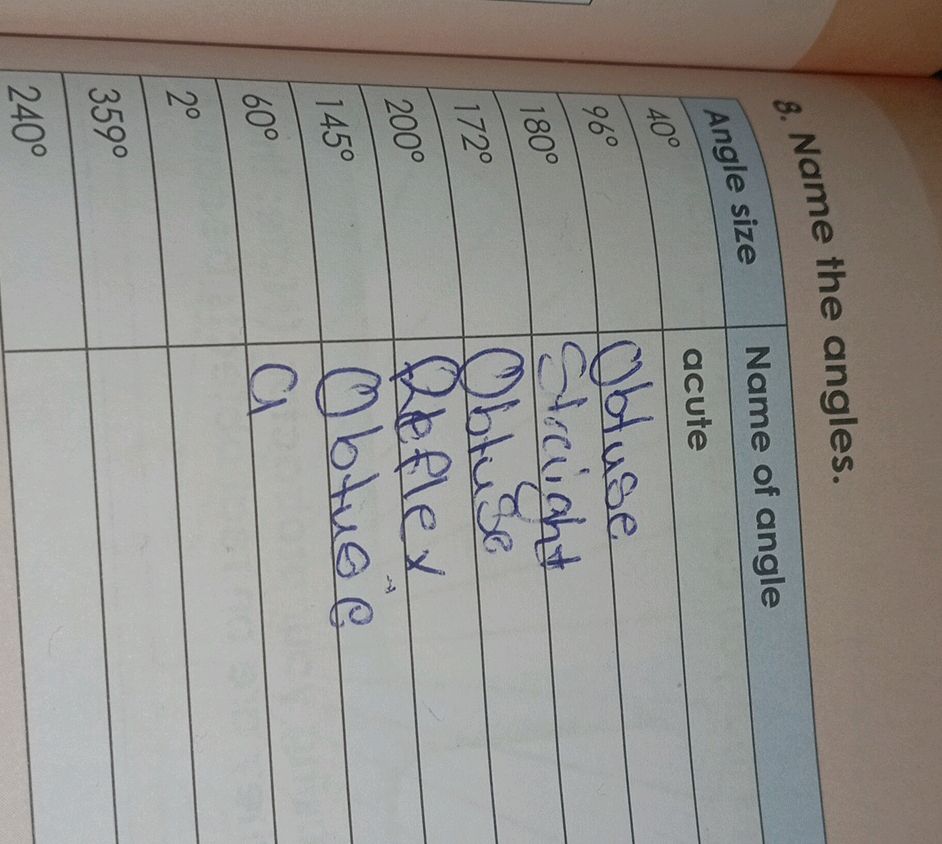 8. Name the angles.
Angle size Name of angle
40° acute
96° Obtuse
180° Straight
172° Obtuse
200° Reflex
145° Obtuse
60° a
2°
359°
240°